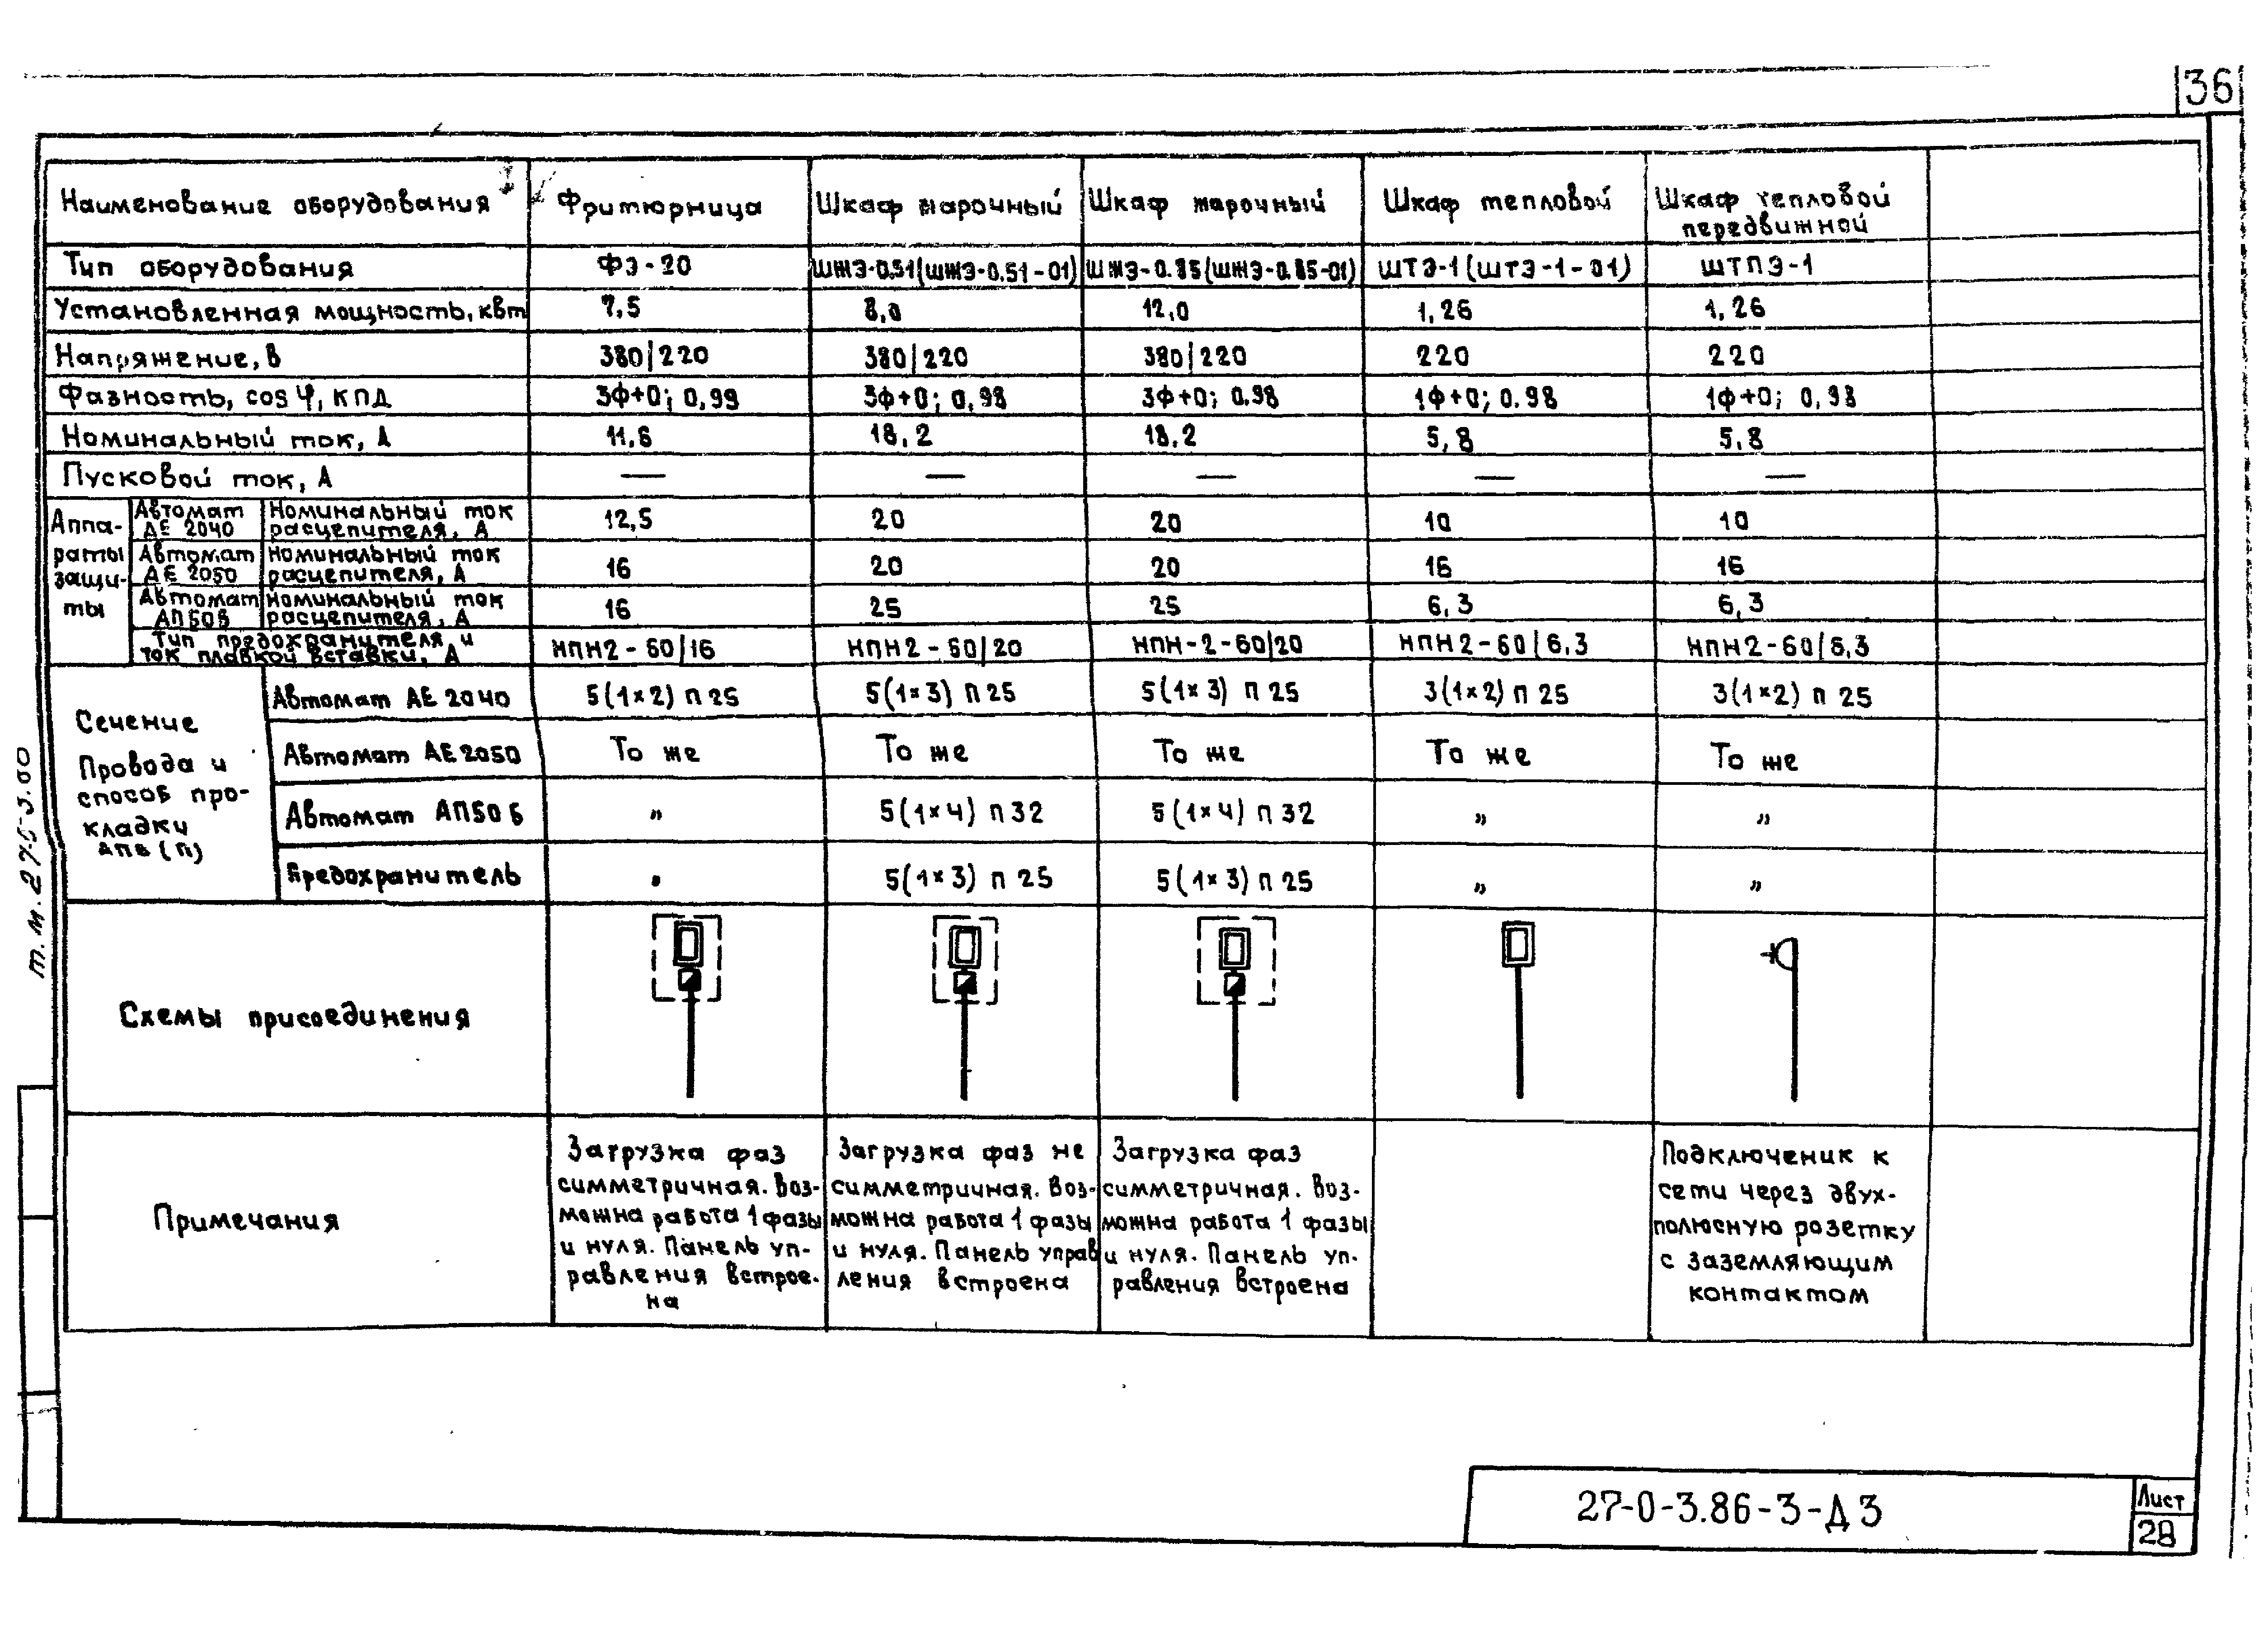 36
Наименование оборудования Фритюрница Шкаф жарочный Шкаф жарочный Шкаф тепловой Шкаф тепловой
передвижной
Тип оборудования ФЭ-20 ШЖЭ-0.51(ШЖЭ-0.51-01) ШЖЭ-0.85(ШЖЭ-0.85-01) ШТЭ-1(ШТЭ-1-01) ШТПЭ-1
Установленная мощность, квт 7,5 8,0 12,0 1,26 1,26
Напряжение, в 380/220 380/220 380/220 220 220
Фазность, cos φ, КПД 3ф+0; 0,99 3ф+0; 0,98 3ф+0; 0.98 1ф+0; 0.98 1ф+0; 0,98
Номинальный ток, А 11,6 18,2 18,2 5,8 5,8
Пусковой ток, А — — — — —
Аппа-
раты
защи-
ты
Автомат АЕ 2040 Номинальный ток расцепителя, А 12,5 20 20 10 10
Автомат АЕ 2050 Номинальный ток расцепителя, А 16 20 20 16 16
Автомат АП50Б Номинальный ток расцепителя, А 16 25 25 6,3 6,3
Тип предохранителя и
ток плавкой вставки, А НПН2-60/16 НПН2-60/20 НПН-2-60/20 НПН2-60/6,3 НПН2-60/6,3
Сечение
Провода и
способ про-
кладки
АПВ (П)
Автомат АЕ 2040 5(1×2) п 25 5(1×3) п 25 5(1×3) п 25 3(1×2) п 25 3(1×2) п 25
Автомат АЕ 2050 То же То же То же То же То же
Автомат АП50Б „ 5(1×4) п 32 5(1×4) п 32 „ „
Предохранитель „ 5(1×3) п 25 5(1×3) п 25 „ „
Схемы присоединения
Примечания
Загрузка фаз
симметричная. Воз-
можна работа 1 фазы
и нуля. Панель уп-
равления встрое-
на
Загрузка фаз не
симметричная. Воз-
можна работа 1 фазы
и нуля. Панель управ
ления встроена
Загрузка фаз
симметричная. Воз-
можна работа 1 фазы
и нуля. Панель уп-
равления встроена
Подключеник к
сети через двух-
полюсную розетку
с заземляющим
контактом
27-0-3.86-3-Д3
Лист
28